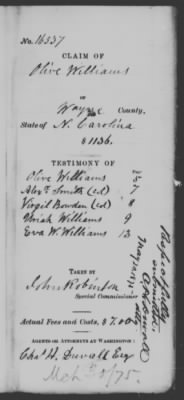 No. 16537
CLAIM OF
Olive Williams
OF
Wayne County,
State of N. Carolina
$ 1136.
TESTIMONY OF
Olive Williams
Alexr Smith (cd) 7
Virgil Bowden (cd) 8
Uriah Williams 9
Eva W. Williams 13
TAKEN BY
John Robinson
Special Commissioner
Actual Fees and Costs, $ 7.00
AGENTS OR ATTORNEYS AT WASHINGTON:
Chas H. Duvall Esq
Mch 3/75.